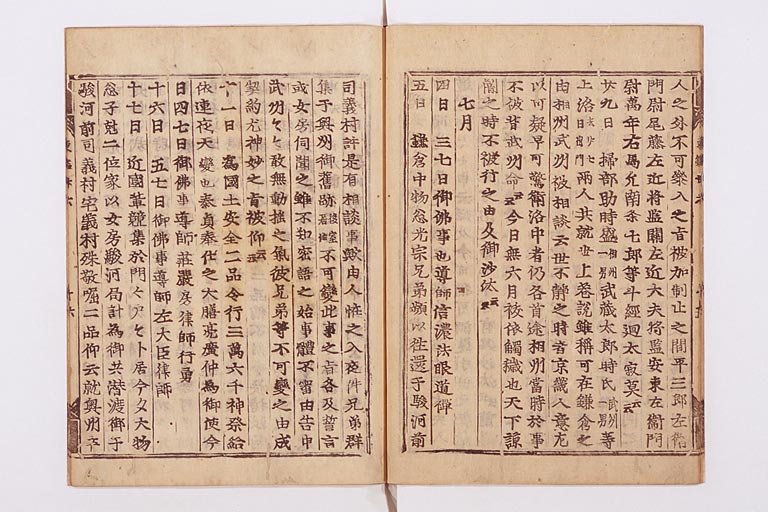 人之外不可參入之旨被加制止之間平三郎左衛
門尉尾藤左近將監關左近大夫將監安東左衞門
尉萬年右馬允南条七郎等斗經廻太寂莫云云
廿九日 掃部助時盛相州一男武蔵太郎時氏武州一男等
上洛 兩人共就世上巷説雖稱可在鎌倉之
由相州武州被相談云世不靜之時者京畿人意尤
以可疑早可警衛洛中者仍各首途相州當時於事
不被背武州命云云今日無六月祓依觸穢也天下諒
闇之時不被行之由及御沙汰云云
七月
四日 三七日御佛事也導師信濃法眼道禅
五日 鎌倉中物忩光宗兄弟頻以往還于駿河前
司義村許是有相談事歟由人恠之入夜件兄弟群
集于奥州御舊跡 不可變此事之旨各及誓言
或女房伺聞之雖不知密語之始事體不審由告申
武州武州敢無動揺之氣彼兄弟等不可變之由成
契約尤神妙之旨被仰云云
十一日 爲國土安全二品令行三萬六千神祭給
依連夜天變也泰貞奉仕之大膳亮廣仲爲御使今
日四七日御佛事導師莊嚴房律師行勇
十六日 五七日御佛事導師左大臣律師
十七日 近國輩競集於門々戸々卜居今夕大物
忩子尅二位家以女房駿河局計爲御共潜渡御于
駿河前司義村宅義村殊敬崛二品仰云就奥州卒